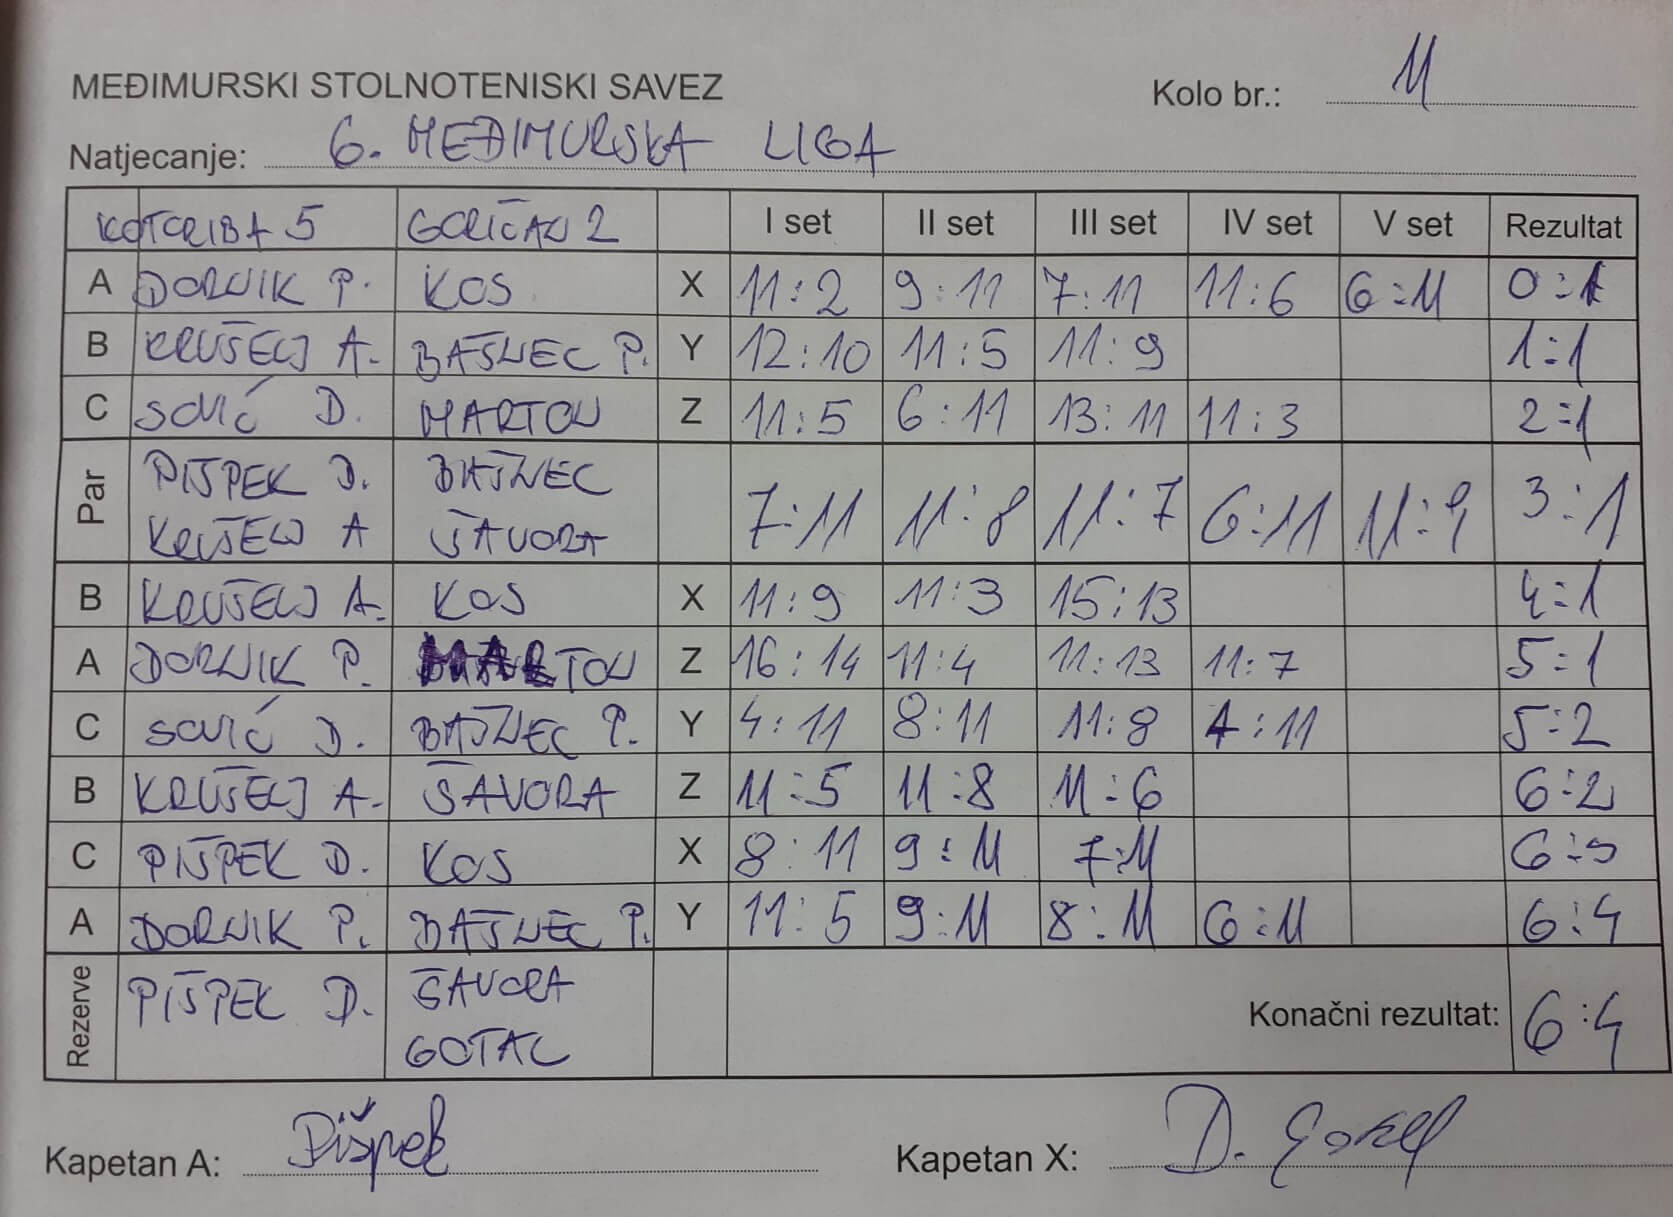 MEĐIMURSKI STOLNOTENISKI SAVEZ Kolo br.: 11
Natjecanje: 6. MEĐIMURSKA LIGA
KOTORIBA 5 GORIČAN 2 I set II set III set IV set V set Rezultat
A DORNIK P. KOS X 11:2 9:11 7:11 11:6 6:11 0:1
B KRUŠELJ A. BAJNEC P. Y 12:10 11:5 11:9 1:1
C SOVIĆ D. MARTON Z 11:5 6:11 13:11 11:3 2:1
Par PIŠPEK D. BAJNEC 7:11 11:8 11:7 6:11 11:9 3:1
KRUŠELJ A ŠAVORA
B KRUŠELJ A. KOS X 11:9 11:3 15:13 4:1
A DORNIK P. MARTON Z 16:14 11:4 11:13 11:7 5:1
C SOVIĆ D. BAJNEC P. Y 4:11 8:11 11:8 4:11 5:2
B KRUŠELJ A. ŠAVORA Z 11:5 11:8 11:6 6:2
C PIŠPEK D. KOS X 8:11 9:11 7:11 6:3
A DORNIK P. BAJNEC P. Y 11:5 9:11 8:11 6:11 6:4
Rezerve PIŠPEK D. ŠAVORA Konačni rezultat: 6:4
GOTAL
Kapetan A: Pišpek Kapetan X: D.